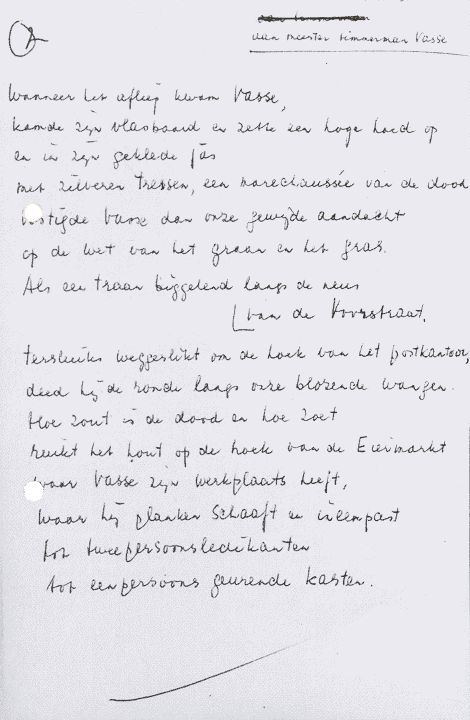 2
aan meester timmerman Vasse
Wanneer het afliep kwam Vasse,
kamde zijn vlasbaard en zette een hoge hoed op
en in zijn geklede jas
met zilveren tressen, een marechaussée van de dood
vestigde Vasse dan onze gewijde aandacht
op de wet van het graan en het gras.
Als een traan biggelend langs de neus
van de Voorstraat,
tersluiks weggeslikt om de hoek van het postkantoor,
deed hij de ronde langs onze blozende wangen.
Hoe zout is de dood en hoe zoet
ruikt het hout op de hoek van de Eiermarkt
waar Vasse zijn werkplaats heeft,
waar hij planken schaaft en ineenpast
tot tweepersoonsledikanten
tot eenpersoons geurende kasten.